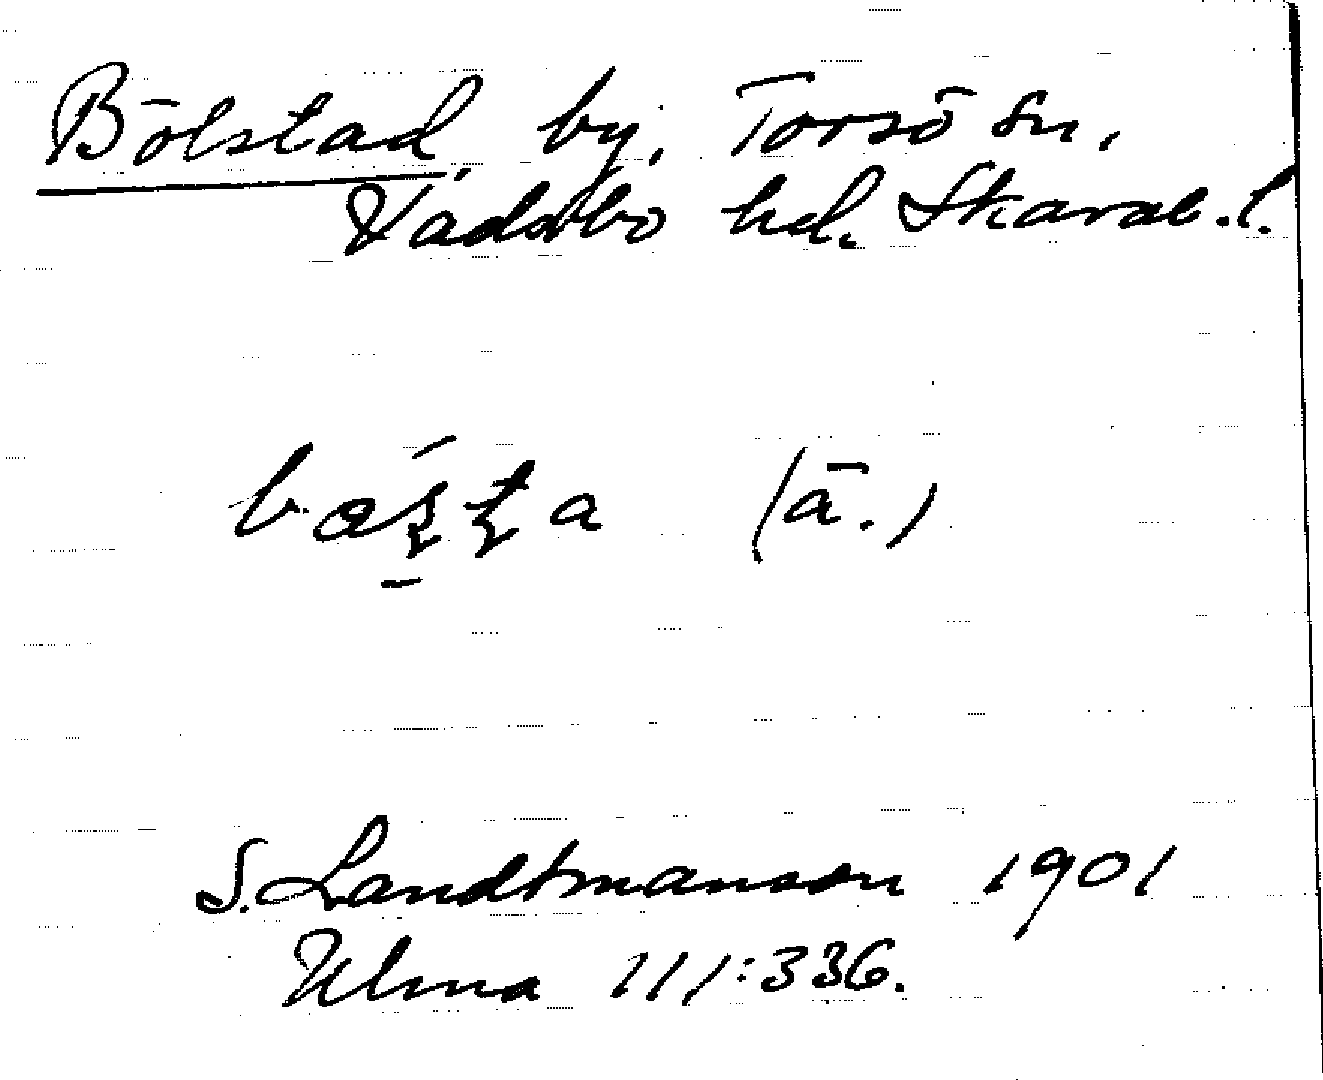 Bölstad, by, Torsö sn,
Vadsbo hd. Skarab. l.
(ā.)
S. Landtmanson 1901
Ulma 111:336.